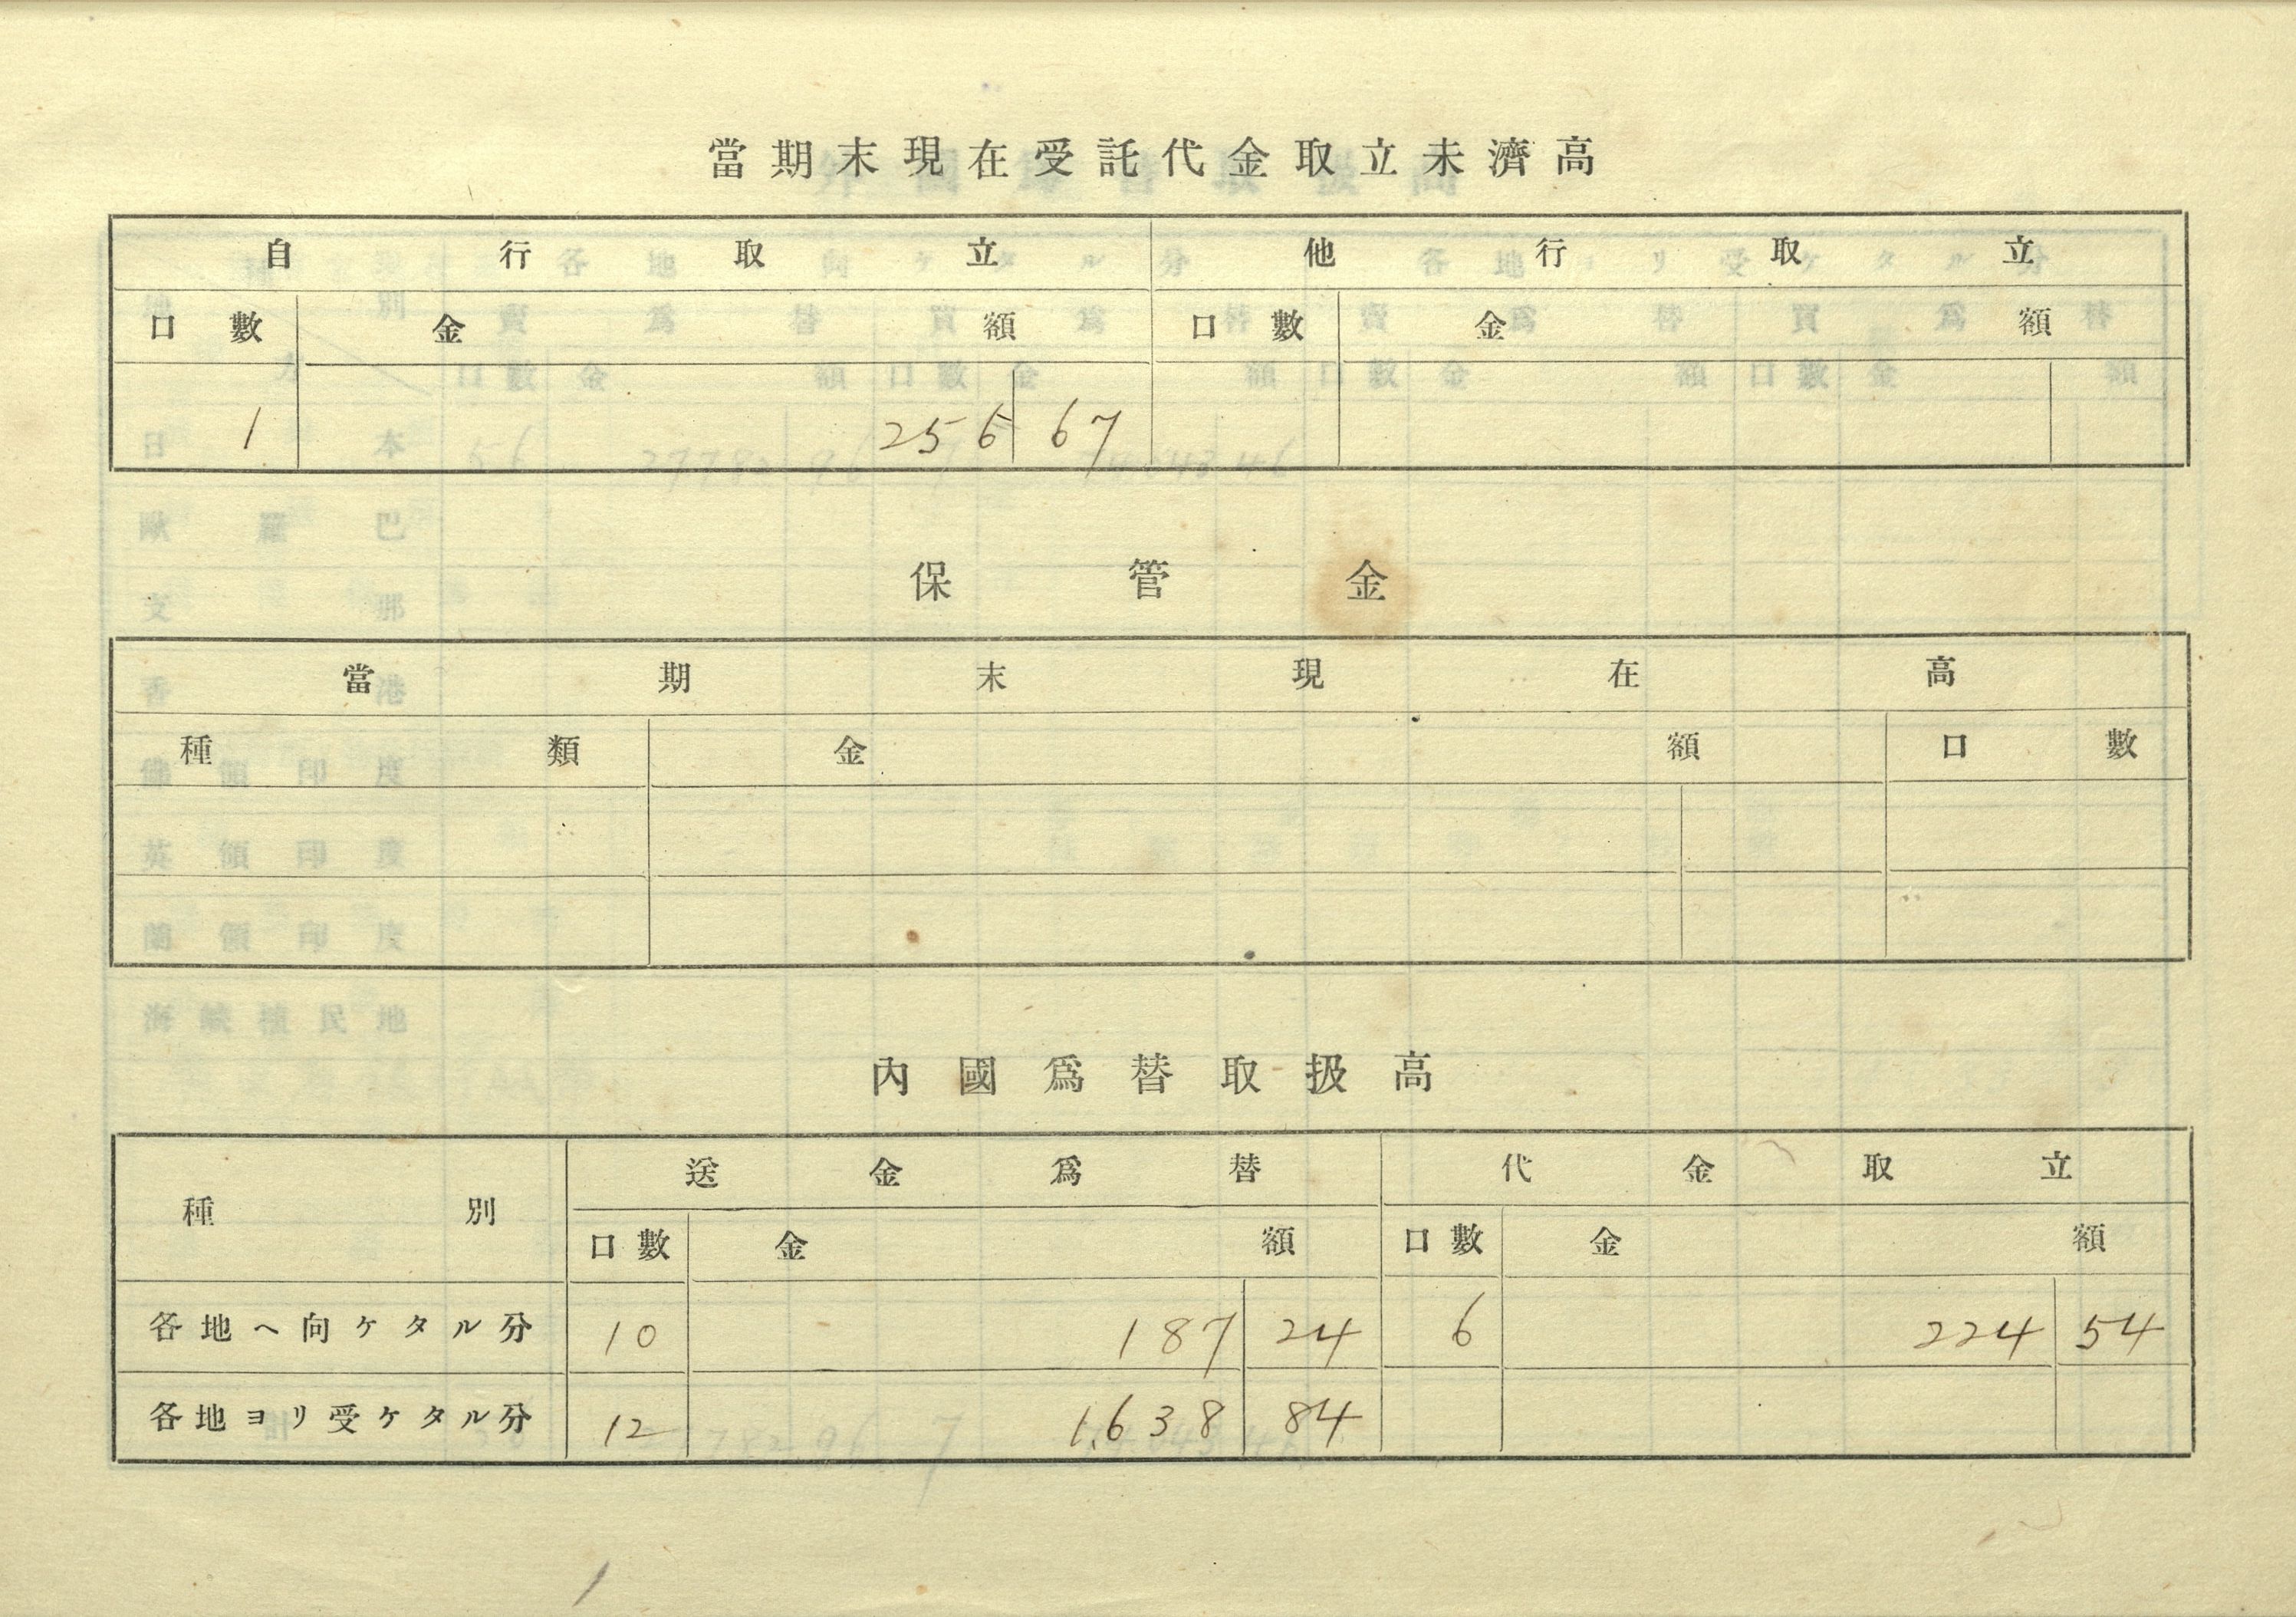 當期末現在受託代金取立未濟高
自行取立 他行取立
口數 金額 口數 金額
1 256 67
保管金
當期末現在高
種類 金額 口數
內國爲替取扱高
種別 送金爲替 代金取立
口數 金額 口數 金額
各地へ向ケタル分 10 187 24 6 224 54
各地ヨリ受ケタル分 12 1,638 84